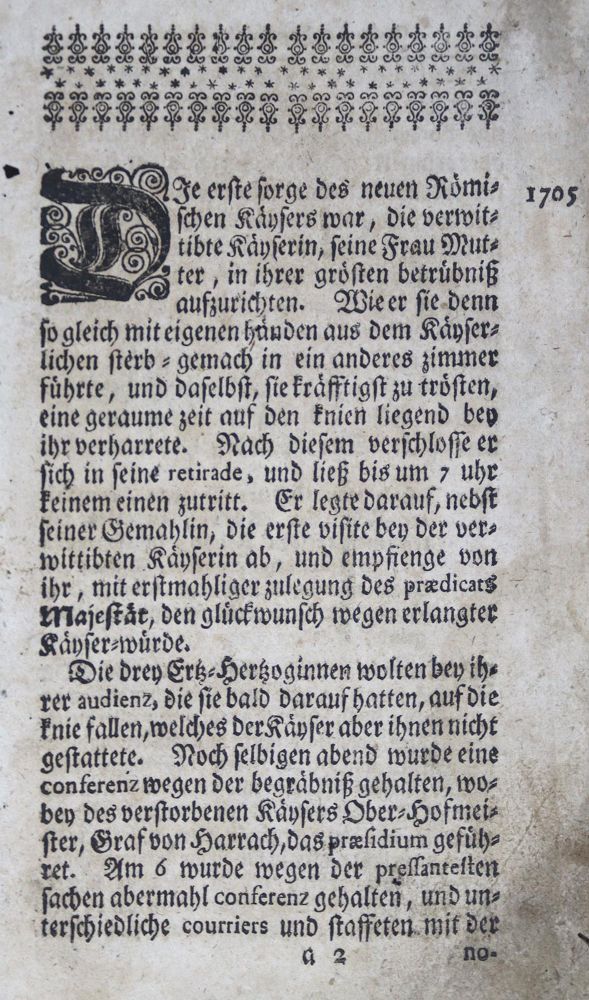 DJe erste sorge des neuen Römi-
schen Käysers war, die verwit-
tibte Käyserin, seine Frau Mut-
ter, in ihrer grösten betrübniß
aufzurichten. Wie er sie denn
so gleich mit eigenen händen aus dem Käyser-
lichen sterb-gemach in ein anderes zimmer
führte, und daselbst, sie kräfftigst zu trösten,
eine geraume zeit auf den knien liegend bey
ihr verharrete. Nach diesem verschlosse er
sich in seine retirade, und ließ bis um 7 uhr
keinem einen zutritt. Er legte darauf, nebst
seiner Gemahlin, die erste visite bey der ver-
wittibten Käyserin ab, und empfienge von
ihr, mit erstmahliger zulegung des prædicats
Majestät, den glückwunsch wegen erlangter
Käyser-würde.
Die drey Ertz-Hertzoginnen wolten bey ih-
rer audienz, die sie bald darauf hatten, auf die
knie fallen, welches der Käyser aber ihnen nicht
gestattete. Noch selbigen abend wurde eine
conferenz wegen der begräbniß gehalten, wo-
bey des verstorbenen Käysers Ober-Hofmei-
ster, Graf von Harrach, das præsidium gefüh-
ret. Am 6 wurde wegen der pressantesten
sachen abermahl conferenz gehalten, und un-
terschiedliche courriers und staffeten mit der
a 2 no-
1705